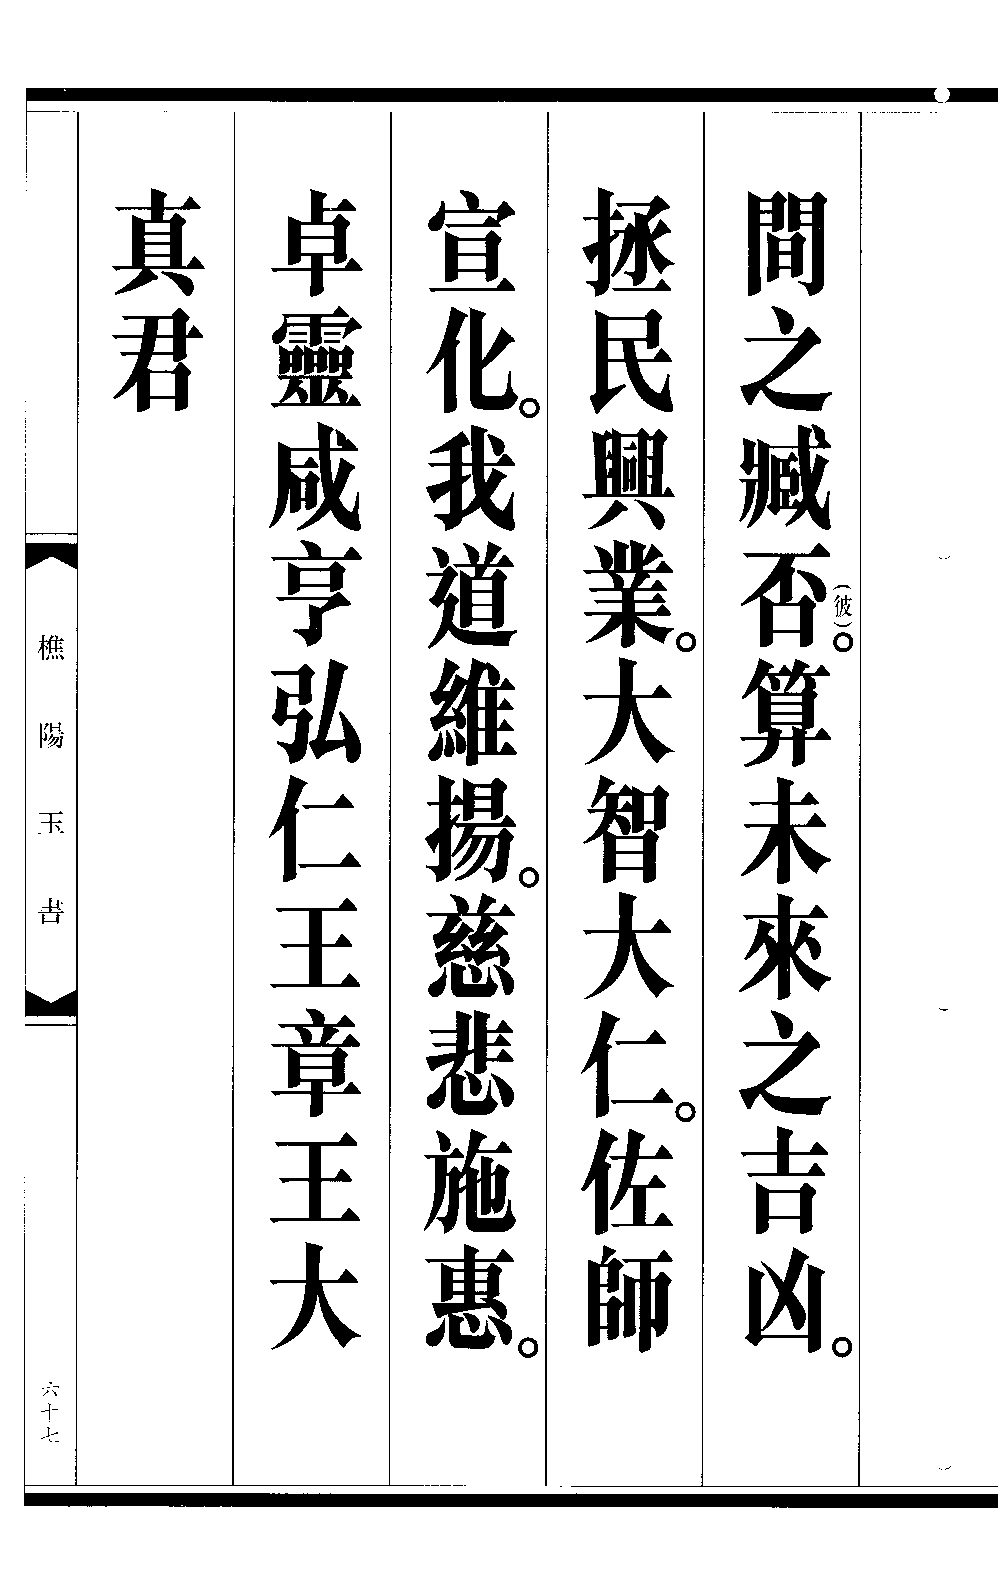 間之臧否(彼)。算未來之吉凶。
拯民興業。大智大仁。佐師
宣化。我道維揚。慈悲施惠。
卓靈咸亨弘仁王章王大
真君
樵陽玉書
六十七